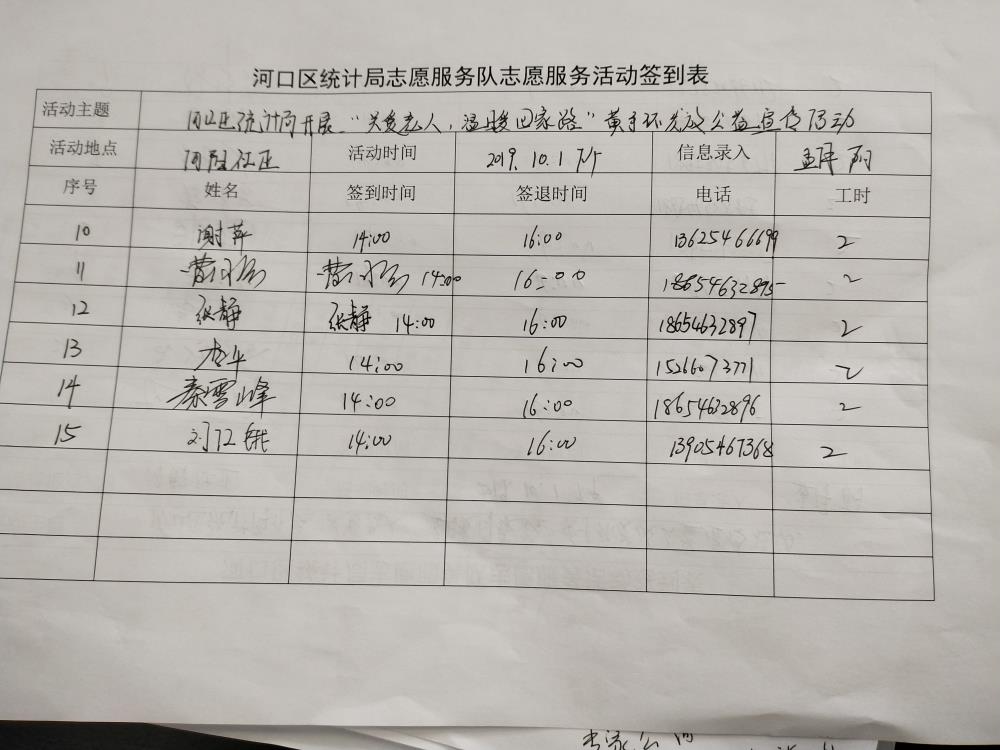 河口区统计局志愿服务队志愿服务活动签到表
活动主题 河口区统计局开展“关爱老人，温暖回家路”黄手环发放公益宣传活动
活动地点 社区 活动时间 2019.10.1 下午 信息录入
序号 姓名 签到时间 签退时间 电话 工时
10 谢萍 14:00 16:00 13625466699 2
11 14:00 16:00 18654632895 2
12 张静 张静 14:00 16:00 18654632897 2
13 14:00 16:00 15266073771 2
14 秦雪峰 14:00 16:00 18654632896 2
15 14:00 16:00 13905467368 2